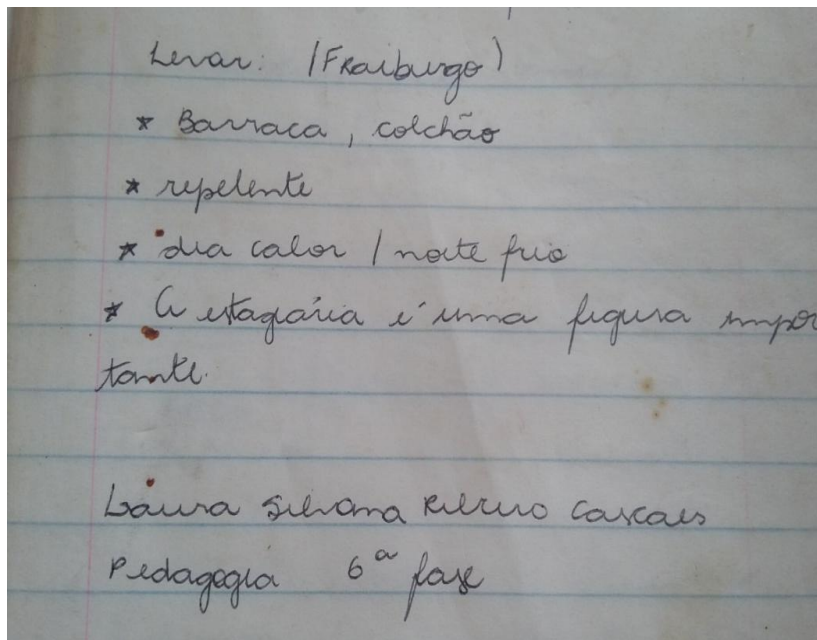 Levar: (Fraiburgo)
* Barraca, colchão
* repelente
* dia calor / noite frio
* A estagiária é uma figura impor
tante.
Laura Silvana Ribeiro Cascaes
Pedagogia 6ª fase